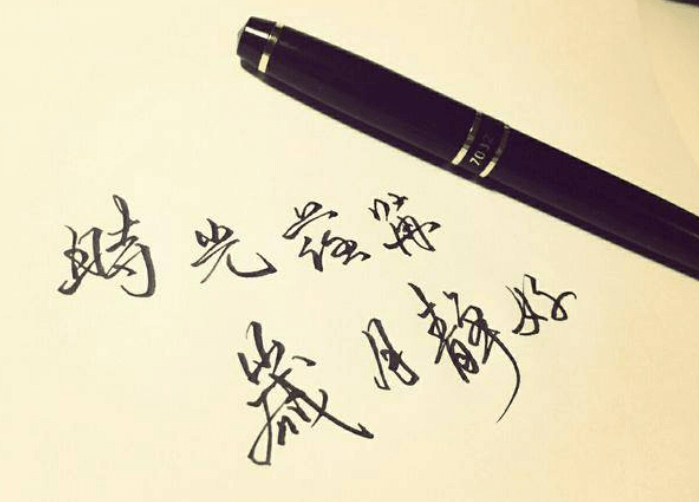 7032
時光荏苒
歲月靜好